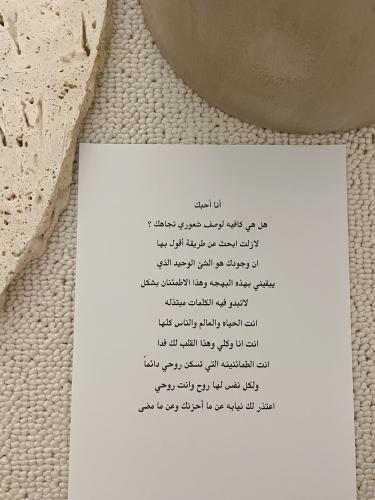 أنا أحبك
هل هي كافيه لوصف شعوري تجاهك ؟
لازلت ابحث عن طريقة أقول بها
ان وجودك هو الشئ الوحيد الذي
يبقيني بهذه البهجه وهذا الاطمئنان بشكل
لاتبدو فيه الكلمات مبتذله
انت الحياه والعالم والناس كلها
انت انا وكلي وهذا القلب لك فدا
انت الطمائنينه التي تسكن روحي دائماً
ولكل نفس لها روح وانت روحي
اعتذر لك نيابه عن ما أحزنك وعن ما مضى